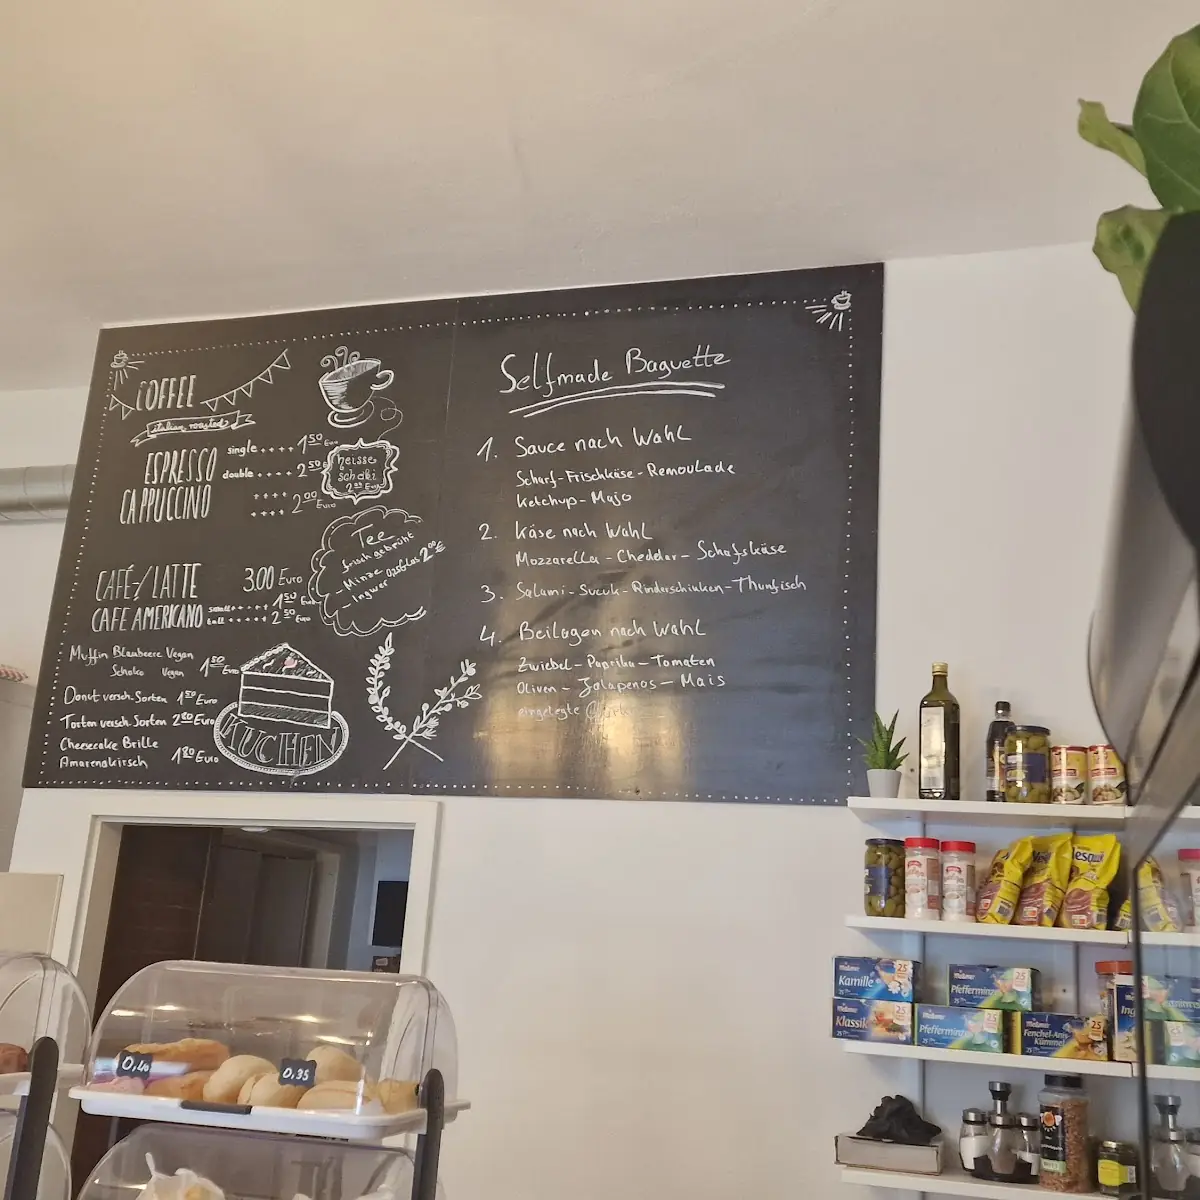 COFFEE
italian roasted
ESPRESSO single .... 1 50 Euro
double .... 2 50
CAPPUCCINO .... 2 00 Euro
heisse
schoki
2 00 Euro
Tee
frisch gebrüht
- Minze
- Ingwer 0,25 Glas 2 00 €
CAFÉ-/LATTE 3.00 Euro
CAFE AMERICANO small .... 1 50 Euro
tall .... 2 50 Euro
Muffin Blaubeere Vegan
Schoko Vegan 1 50 Euro
Donut versch. Sorten 1 50 Euro
Torten versch. Sorten 2 80 Euro
Cheesecake Brille
Amarenakirsch 1 80 Euro
KUCHEN
Selfmade Baguette
1. Sauce nach Wahl
Scharf - Frischkäse - Remoulade
Ketchup - Majo
2. Käse nach Wahl
Mozzarella - Cheddar - Schafskäse
3. Salami - Sucuk - Rinderschinken - Thunfisch
4. Beilagen nach Wahl
Zwiebel - Paprika - Tomaten
Oliven - Jalapenos - Mais
eingelegte
0,40
0,35
Meßmer
Kamille
25
Meßmer
Pfefferminz
25
Klassik
Meßmer
Pfefferminz
25
Meßmer
Fenchel-Anis
Kümmel
25
Ing